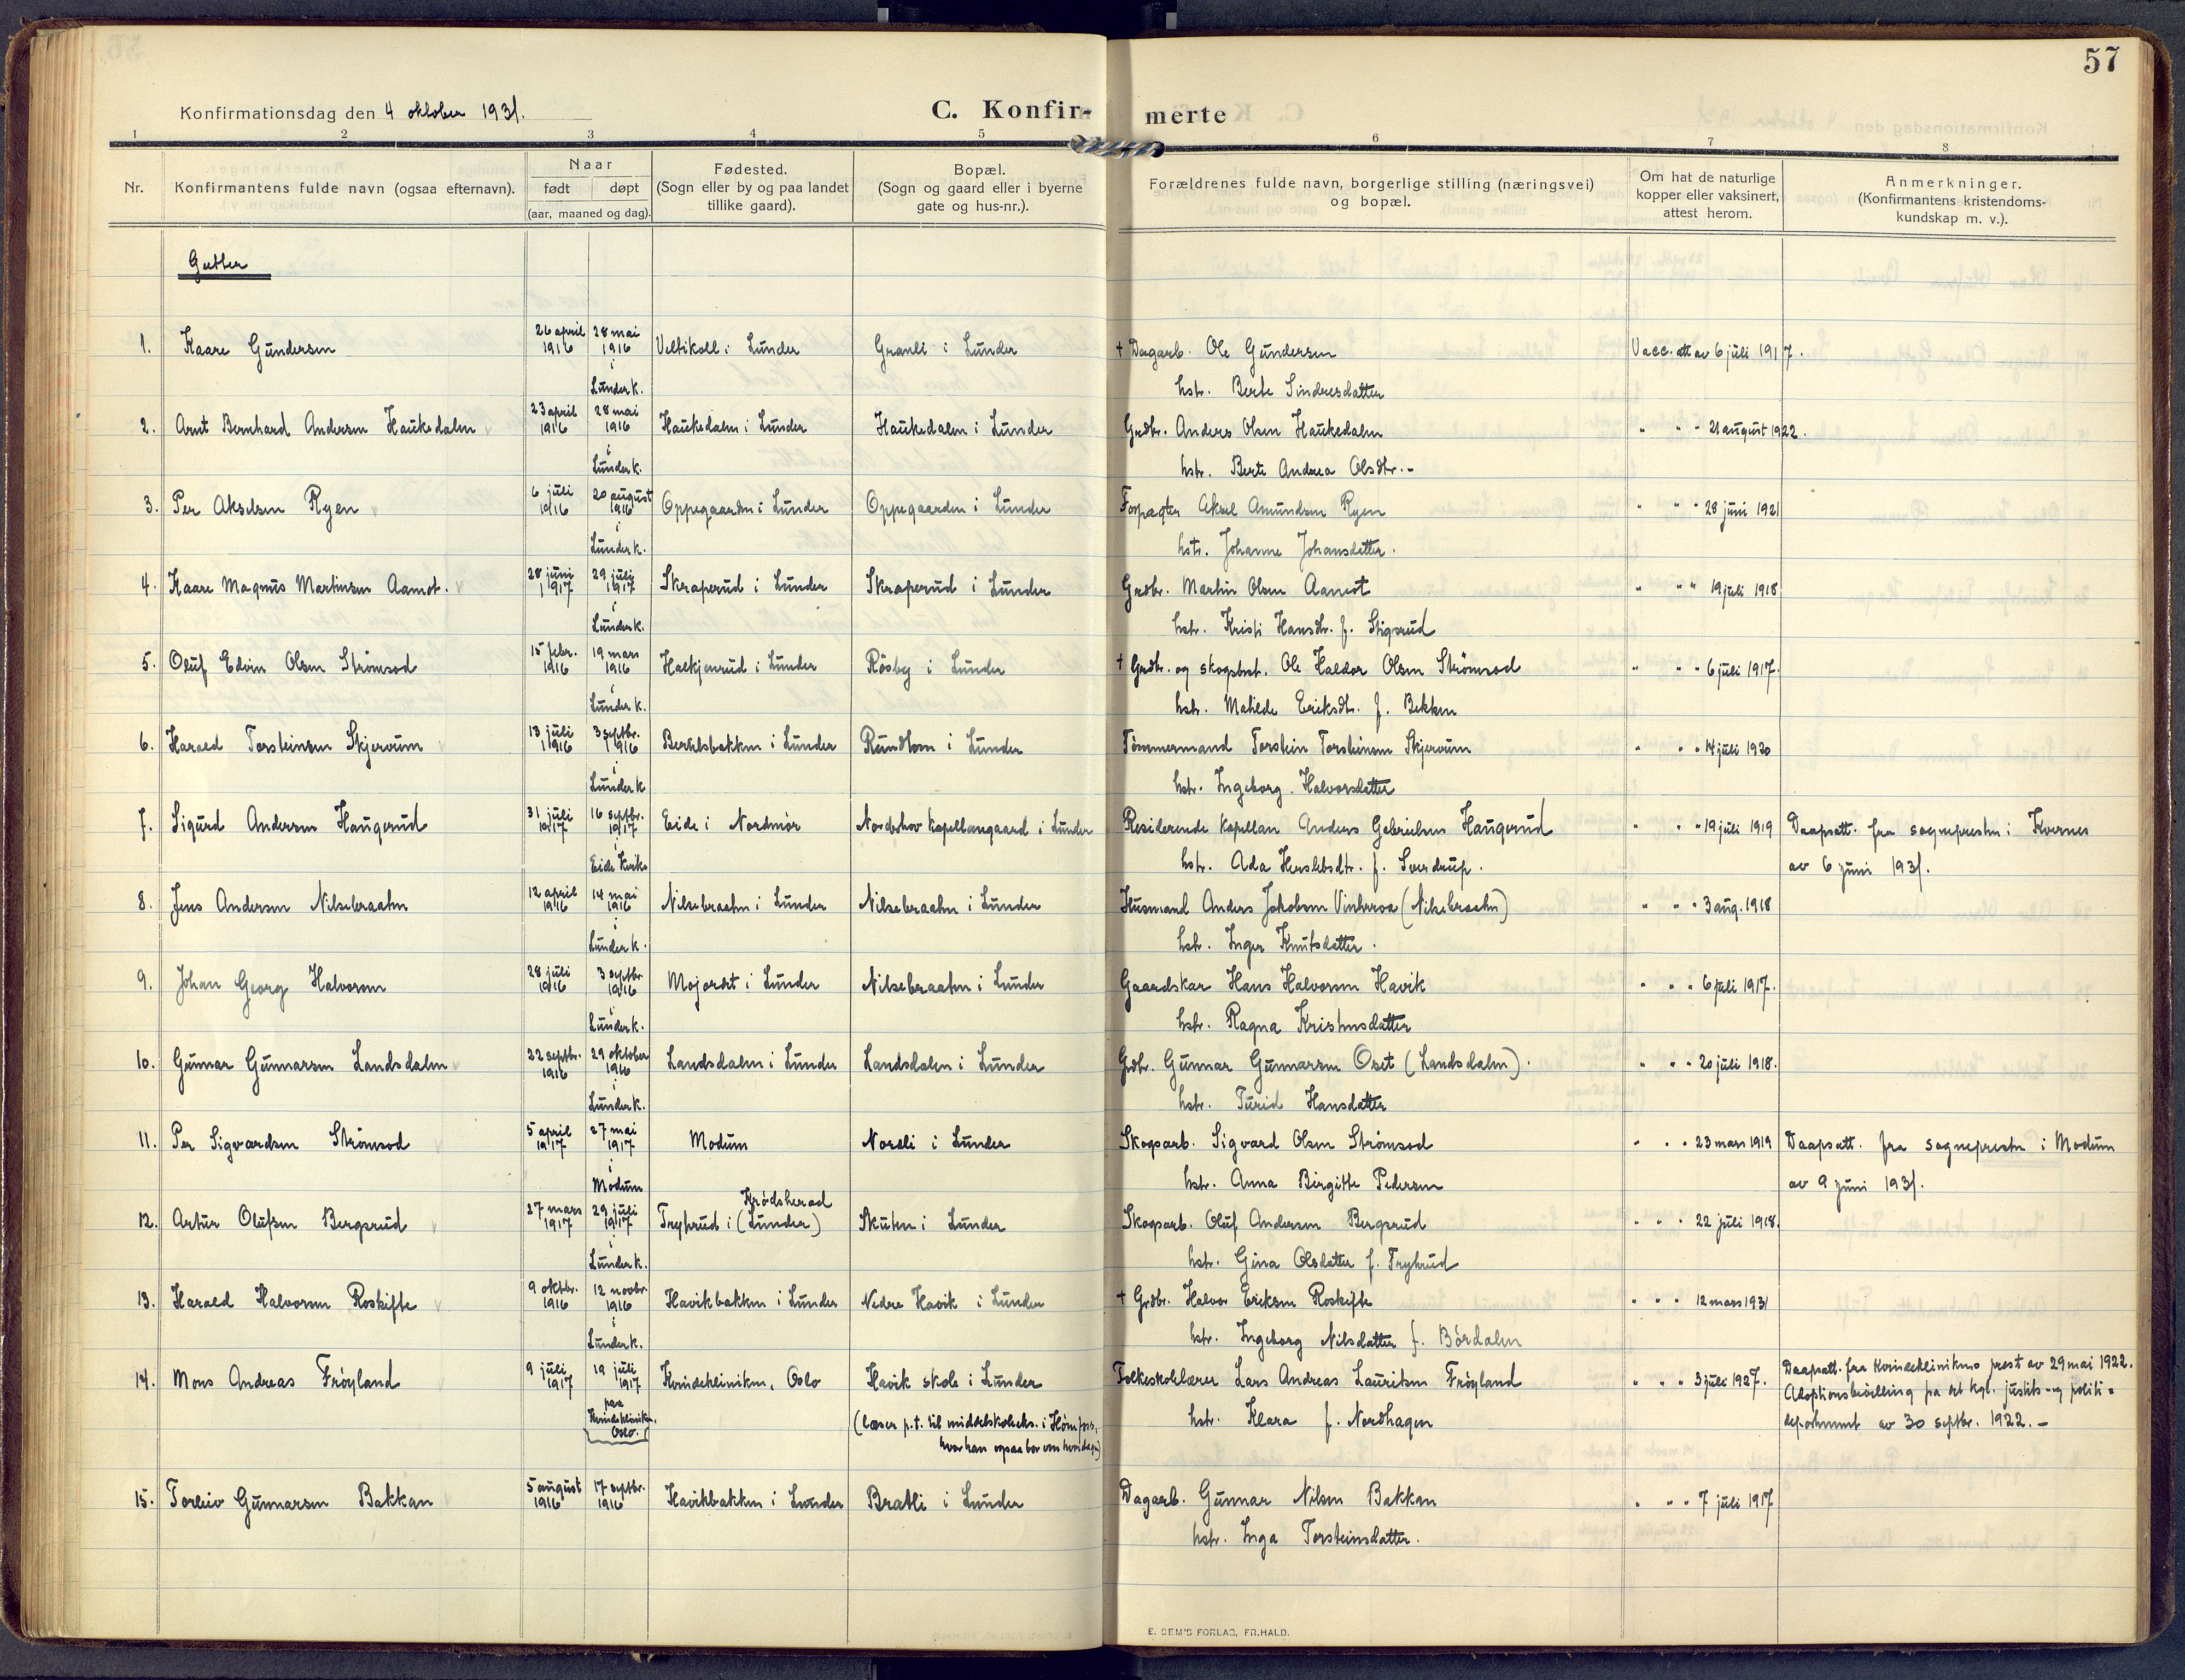 57
Konfirmationsdag den 4 oktober 1931.
C. Konfir-
merte
1 2 3 4 5 6 7 8
Nr.
Konfirmantens fulde navn (ogsaa efternavn).
Naar
født døpt
(aar, maaned og dag).
Fødested.
(Sogn eller by og paa landet
tillike gaard).
Bopæl.
(Sogn og gaard eller i byerne
gate og hus-nr.).
Forældrenes fulde navn, borgerlige stilling (næringsvei)
og bopæl.
Om hat de naturlige
kopper eller vaksinert,
attest herom.
Anmerkninger.
(Konfirmantens kristendoms-
kundskap m. v.).
Gutter
26 april 28 mai
1. Kaare Gundersen 1916 1916 Veltikoll i Lunder Granli i Lunder + Dagarb. Ole Gundersen Vacc. att av 6 juli 1917.
i
Lunder k. hstr. Berte Sindresdatter
23 april 28 mai
2. Arnt Bernhard Andersen Haukedalen 1916 1916 Haukedalen i Lunder Haukedalen i Lunder Grdbr. Anders Olsen Haukedalen " " " 21 august 1922.
i
Lunder k. hstr. Berte Andrea Olsdtr. -
6 juli 20 august
3. Per Akselsen Ryen 1916 1916 Oppegaarden i Lunder Oppegaarden i Lunder Forpagter Aksel Amundsen Ryen " " " 28 juni 1921
i
Lunder k. hstr. Johanne Johansdatter.
28 juni 29 juli
4. Kaare Magnus Martinsen Aamot. 1917 1917 Skraperud i Lunder Skraperud i Lunder Grdbr. Martin Olsen Aamot " " " 19 juli 1918
i
Lunder k. hstr. Kristi Hansdtr. f. Stigsrud
15 febr. 19 mars
5. Oluf Edvin Olsen Strømsod 1916 1916 Halkjenrud i Lunder Røsby i Lunder + Grdbr. og skogsbest. Ole Haldor Olsen Strømsod " " " 6 juli 1917.
i
Lunder k. hstr. Matilde Eriksdtr. f. Bekken
13 juli 3 septbr.
6. Harald Torsteinsen Skjervum 1916 1916 Bertelsbakken i Lunder Rundtom i Lunder Tømmermand Torstein Torsteinsen Skjervum " " " 14 juli 1920
i
Lunder k hstr. Ingeborg Halvorsdatter
31 juli 16 septbr.
7. Sigurd Andersen Haugerud 1917 1917 Eide i Nordmør Norderhov kapellangaard i Lunder Residerende kapellan Anders Gabrielsen Haugerud " " " 19 juli 1919 Daapsatt. fra sognepresten i Kvernes
i
Eide kirke hstr. Ada Herslebsdtr. f. Sverdrup. av 6 juni 1931.
12 april 14 mai
8. Jens Andersen Nilsebraaten 1916 1916 Nilsebraaten i Lunder Nilsebraaten i Lunder Husmand Anders Jakobsen Vinterroa (Nilsebraaten) " " " 3 aug. 1918
i
Lunder k. hstr. Inger Knutsdatter.
28 juli 3 septbr.
9. Johan Georg Halvorsen 1916 1916 Mojordet i Lunder Nilsebraaten i Lunder Gaardskar Hans Halvorsen Havik " " " 6 juli 1917.
i
Lunder k. hstr. Ragna Kristensdatter
22 septbr. 29 oktober
10. Gunnar Gunnarsen Landsdalen 1916 1916 Landsdalen i Lunder Landsdalen i Lunder Grdbr. Gunnar Gunnarsen Oset (Landsdalen). " " " 20 juli 1918.
i
Lunder k. hstr. Turid Hansdatter
5 april 27 mai
11. Per Sigvardsen Strømsod 1917 1917 Modum Nordli i Lunder Skogsarb. Sigvard Olsen Strømsod " " " 23 mars 1919 Daapsatt. fra sognepresten i Modum
i
Modum hstr. Anna Birgitte Pedersen av 9 juni 1931.
27 mars 29 juli Krødsherad
12. Artur Olufsen Bergsrud 1917 1917 Tryterud i (Lunder) Skuten i Lunder Skogsarb. Oluf Andersen Bergsrud " " " 22 juli 1918.
i
Lunder k. hstr. Gina Olsdatter f. Tryterud
9 oktbr. 12 novbr.
13. Harald Halvorsen Roskifte 1916 1916 Havikbakken i Lunder Nedre Havik i Lunder + Grdbr. Halvor Eriksen Roskifte " " " 12 mars 1931
i
Lunder k. hstr. Ingeborg Nilsdatter f. Bördalen
9 juli 19 juli
14. Mons Andreas Frøyland 1917 1917 Kvindeklinikken, Oslo Havik skole i Lunder Folkeskolelærer Lars Andreas Lauritsen Frøyland " " " 3 juli 1927. Daapsatt. fra Kvindeklinikkens prest av 29 mai 1922.
Adoptionsbevilling fra det kgl. justits- og politi-
paa
Kvindeklinikken, (læser p.t. til middelskoleeks. i Hønefoss, hstr. Klara f. Nordhagen departement av 30 septbr. 1922. -
Oslo. hvor han ogsaa bor om hverdagen)
5 august 17 septbr.
15. Torleiv Gunnarsen Bakkan 1916 1916 Havikbakken i Lunder Bratli i Lunder Dagarb. Gunnar Nilsen Bakkan " " " 7 juli 1917
hstr. Inga Torsteinsdatter.
E. SEM'S FORLAG, FR.HALD.